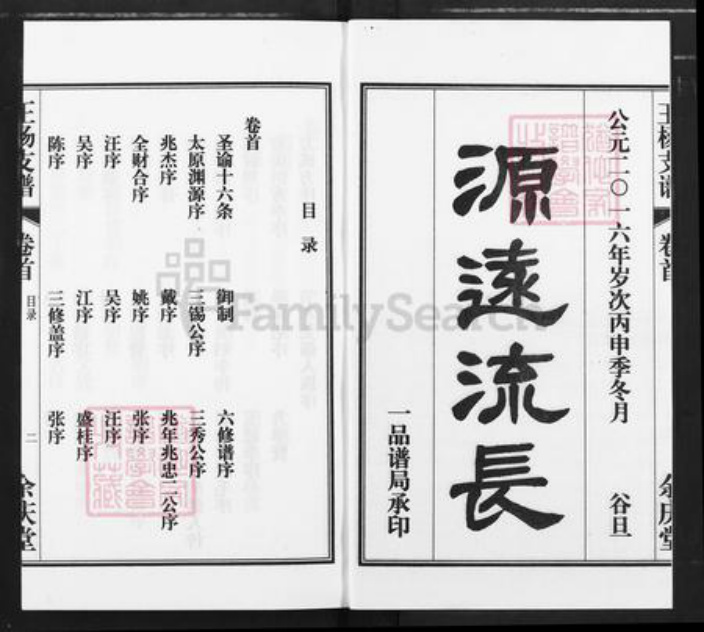 王杨支谱
卷首
余庆堂
公元二〇一六年岁次丙申季冬月 谷旦
源遠流長
一品谱局承印
目录
卷首
圣谕十六条 御制 六修谱序
太原渊源序 三锡公序 三秀公序
兆杰序 戴序 兆年兆忠二公序
全财合序 姚序 张序
汪序 吴序 汪序
吴序 江序 盛桂序
陈序 三修盖序 张序
王杨支谱
卷首
目录
二
余庆堂
FamilySearch